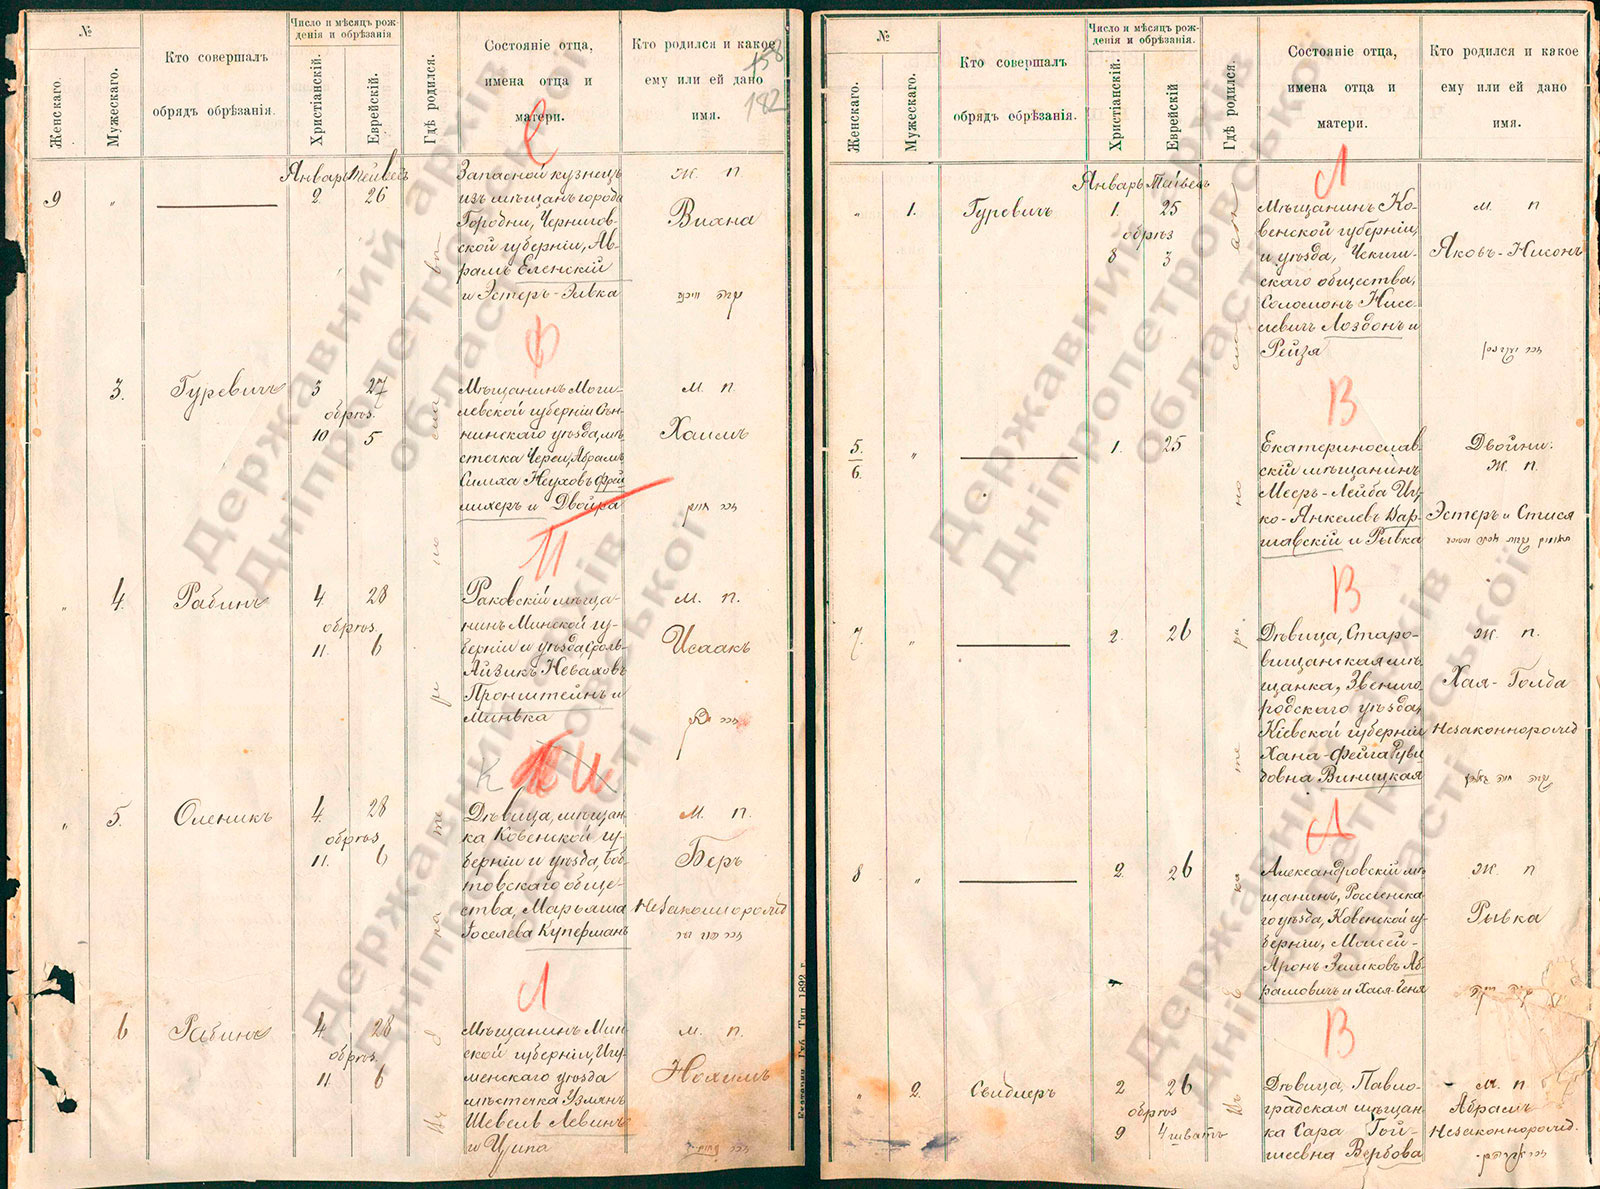 №
Женскаго.
Мужескаго.
Кто совершалъ
обрядъ обрѣзанія.
Число и мѣсяцъ рож-
денія и обрѣзанія
Христіанскій.
Еврейскій.
Гдѣ родился.
Состояніе отца,
имена отца и
матери.
Кто родился и какое
ему или ей дано
имя.
158
182
С
9
"
Январь
2
Тейвесъ
26
Запасной кузнецъ
изъ мѣщанъ города
Городни, Чернигов-
ской губерніи, Ав-
рамъ Еленскій
и Эстеръ-Зивка
Ж. п
Виана
Ф
3.
Гуревичъ
3
27
обрѣз.
10
5
Мѣщанинъ Моги-
левской губерніи Сѣн-
нинскаго уѣзда, мѣ-
стечка Череи, Абрамъ
Симха Неуховъ Фрей
лихеръ и Двойра
м. п
Хаимъ
П
"
4.
Рабинъ
4.
28
обрѣз.
11.
6
Раковскій мѣща-
нинъ Минской гу-
берніи и уѣзда Сроль-
Айзикъ Неваховъ
Пронштейнъ и
Минька
м. п.
Исаакъ
К
"
5.
Оленикъ
4.
28
обрѣз
11.
6
Дѣвица, мѣщан
ка Ковенской гу-
берніи и уѣзда, Боб-
товскаго обще-
ства, Марьяша
Іоселева Куперманъ
м. п.
Беръ
Незаконнорожд
Л
6
Рабинъ
4.
28
обрѣз.
11.
6
Мѣщанинъ Мин
ской губерніи, Игу-
менскаго уѣзда
мѣстечка Узлянъ
Шевель Левинъ
и Ципа
м. п.
Нохимъ
Въ г. Екатеринославѣ
Екатерин. Губ. Тип. 1892 г.
№
Женскаго.
Мужескаго.
Кто совершалъ
обрядъ обрѣзанія.
Число и мѣсяцъ рож-
денія и обрѣзанія.
Христіанскій.
Еврейскій
Гдѣ родился.
Состояніе отца,
имена отца и
матери.
Кто родился и какое
ему или ей дано
имя.
Л
"
1.
Гуревичъ
Январь
1.
Тайвесъ
25
обрѣз
8
3
Мѣщанинъ Ко-
венской губерніи,
и уѣзда, Чекиш-
скаго общества,
Соломонъ Нисе-
левичъ Лоздонъ и
Рейзя
м. п
Яковъ-Нисонъ
В
5.
6.
"
1.
25
Екатеринослав-
скій мѣщанинъ
Меєръ-Лейба Иц
ко-Янкелевъ Вар-
шавскій и Рывка
Двойни:
Ж. п.
Эстеръ и Стися
В
7.
"
2.
26
Дѣвица, Старо-
вищанская мѣ-
щанка, Звениго-
родскаго уѣзда,
Кіевской губерніи
Хана-Фейга Руви
новна Виницкая
Ж. п.
Хая-Голда
Незаконнорожд
А
8
"
2.
26
Александровскій мѣ
щанинъ, Россіенска
го уѣзда, Ковенской гу-
берніи, Мовсей-
Аронъ Залковъ Аб-
рамовичъ и Хася-Геня
Ж п
Рывка
В
"
2.
Свидлеръ
2
26
обрѣз
9
4 шватъ
Дѣвица, Павло-
градская мѣщан
ка Сара Гой-
шеевна Вербова
м. п
Абрамъ
Незаконнорожд.
Державний архів
Дніпропетровської
області